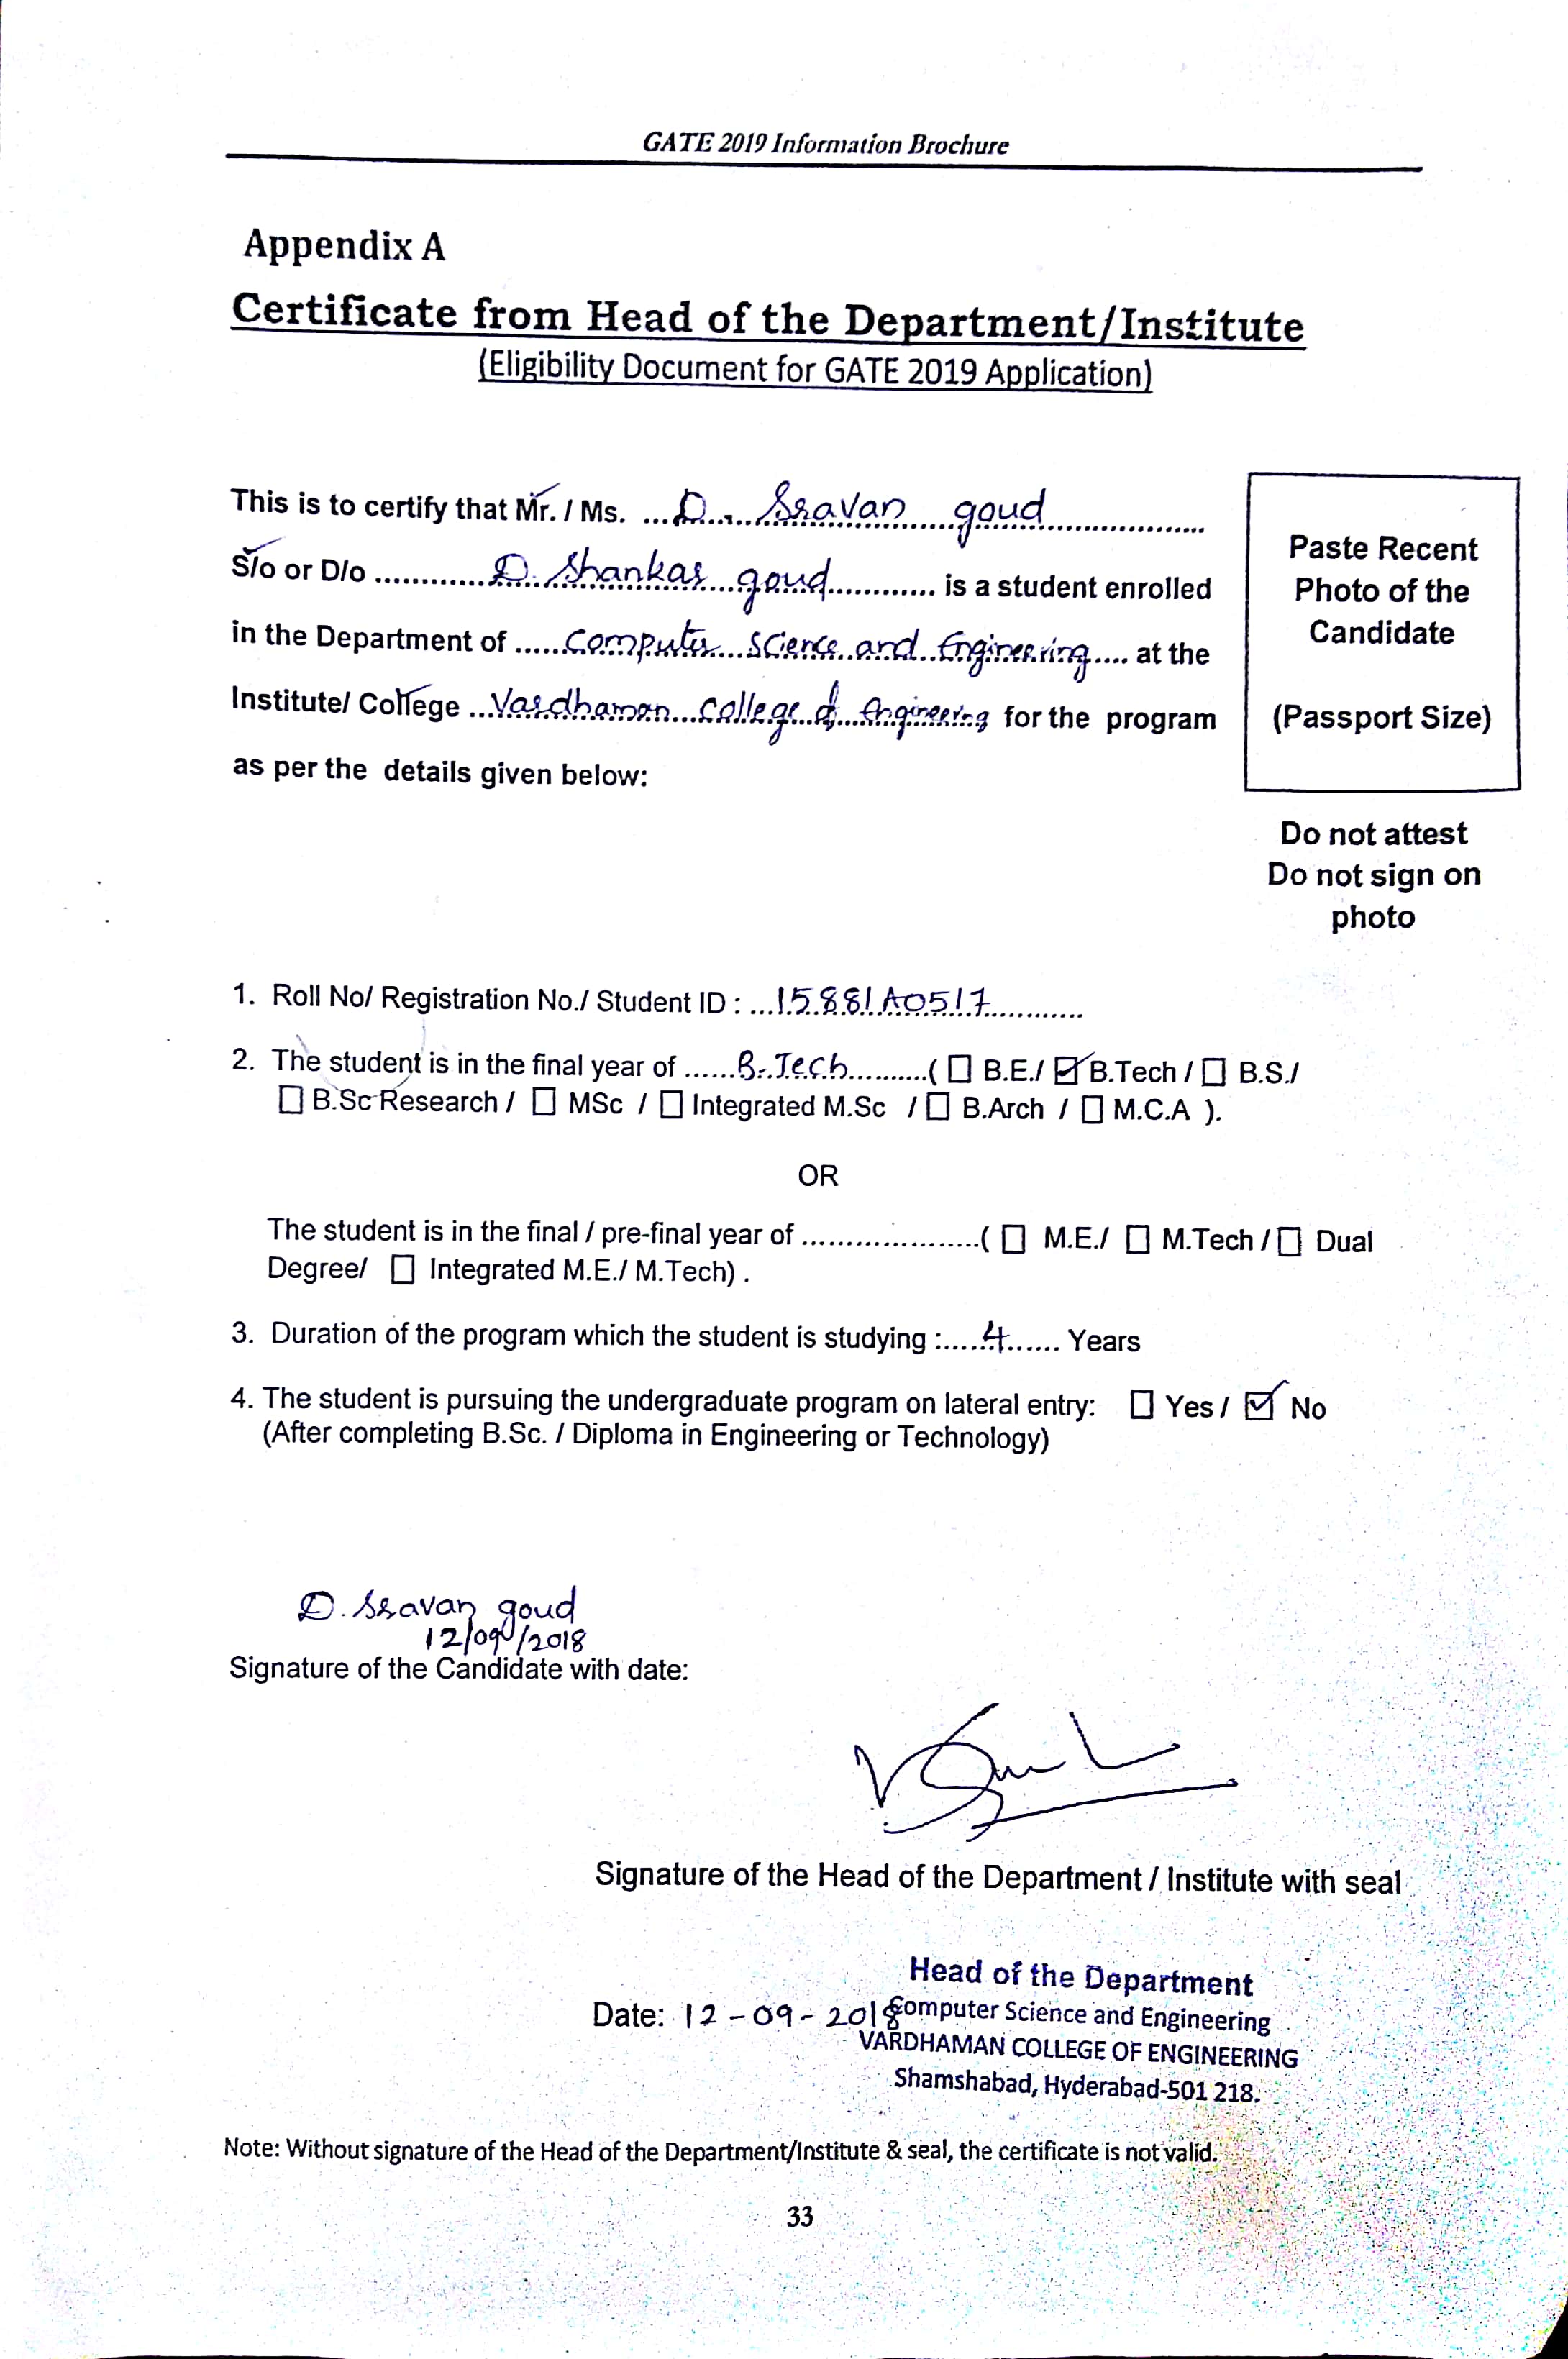 GATE 2019 Information Brochure
Appendix A
Certificate from Head of the Department/Institute
(Eligibility Document for GATE 2019 Application)
This is to certify that Mr. / Ms. ...D. Sravan goud...
S/o or D/o ...D. Shankar goud... is a student enrolled
in the Department of ...Computer Science and Engineering... at the
Institute/ College ...Vardhaman College of Engineering for the program
as per the details given below:
Paste Recent
Photo of the
Candidate
(Passport Size)
Do not attest
Do not sign on
photo
1. Roll No/ Registration No./ Student ID : ...15881A0517...
2. The student is in the final year of ...B.Tech...( ☐ B.E./ ☑ B.Tech / ☐ B.S./
☐ B.Sc Research / ☐ MSc / ☐ Integrated M.Sc / ☐ B.Arch / ☐ M.C.A ).
OR
The student is in the final / pre-final year of ......................( ☐ M.E./ ☐ M.Tech / ☐ Dual
Degree/ ☐ Integrated M.E./ M.Tech) .
3. Duration of the program which the student is studying :.....4...... Years
4. The student is pursuing the undergraduate program on lateral entry: ☐ Yes / ☑ No
(After completing B.Sc. / Diploma in Engineering or Technology)
D. Sravan goud
12/09/2018
Signature of the Candidate with date:
Signature of the Head of the Department / Institute with seal
Head of the Department
Date: 12-09-2018 Computer Science and Engineering
VARDHAMAN COLLEGE OF ENGINEERING
Shamshabad, Hyderabad-501 218.
Note: Without signature of the Head of the Department/Institute & seal, the certificate is not valid.
33